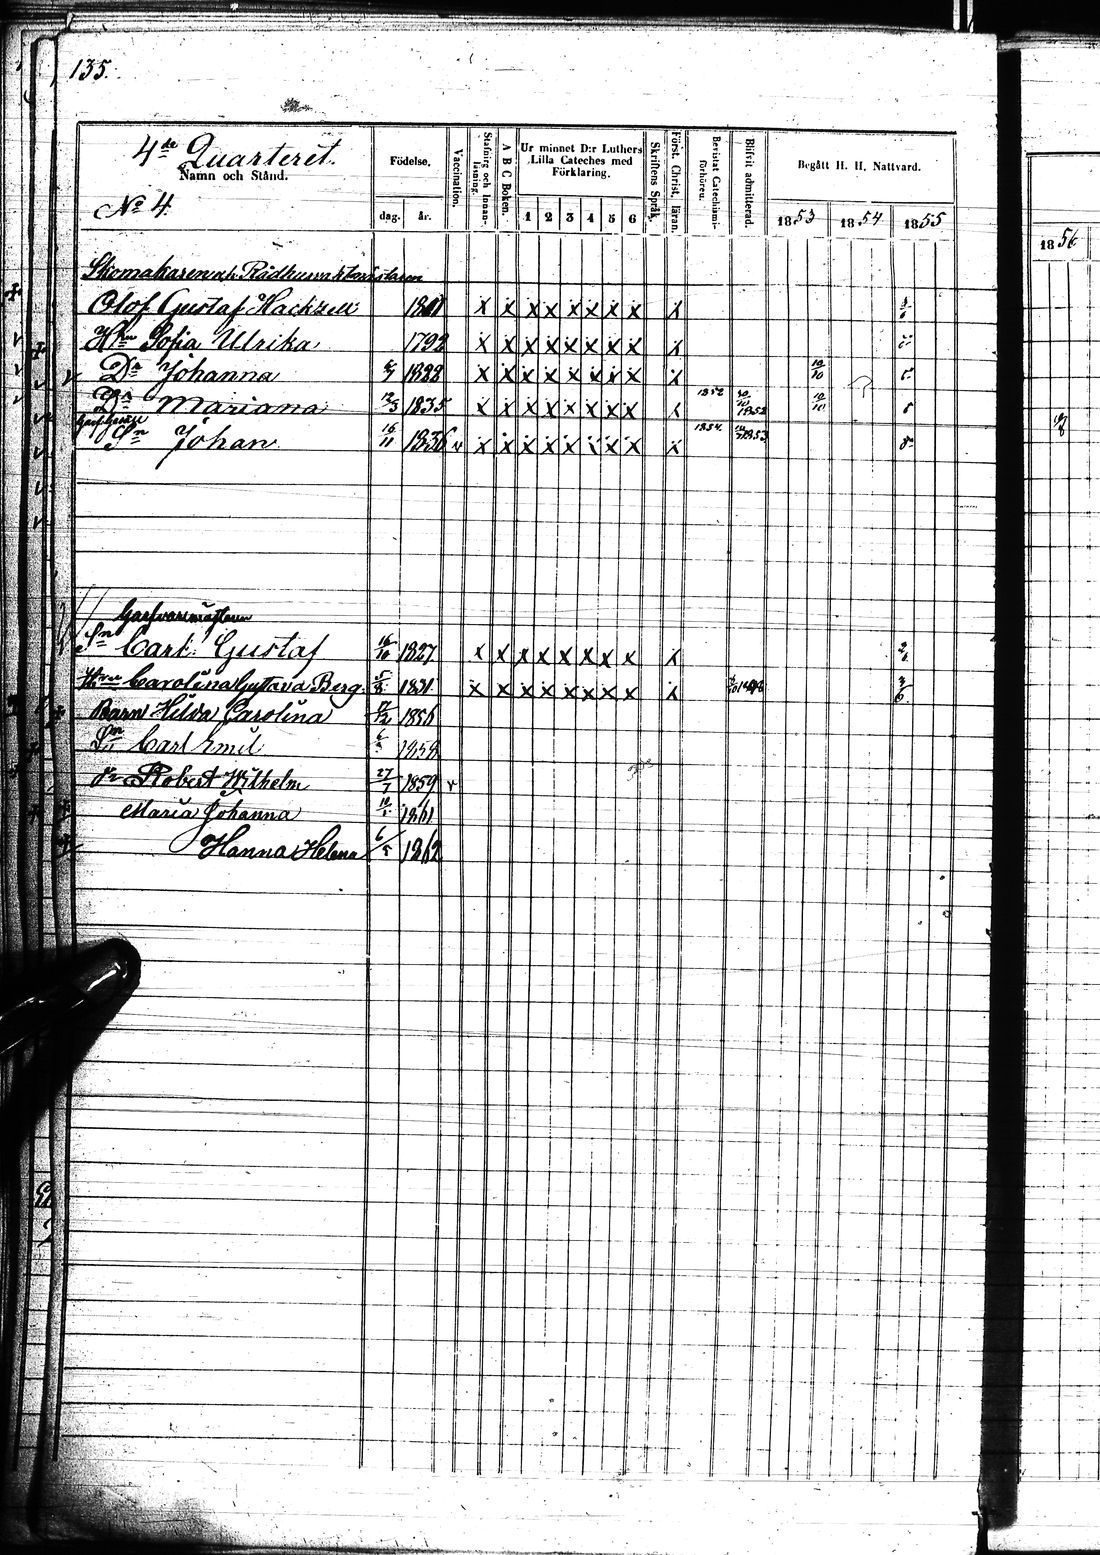 135.
4de Quarteret.
Namn och Stånd.
No 4.
Födelse.
dag. år.
Vaccination.
Stafning och Innanläsning.
A B C Boken.
Ur minnet D:r Luthers Lilla Cateches med Förklaring.
1 2 3 4 5 6
Skriftens Språk.
Först. Christ. läran.
Bevistat Catechismiförhören.
Blifvit admitterad.
Begått H. H. Nattvard.
1853 1854 1855
1856
Skomakaren
Olof Gustaf Hackzell 1801 x x x x x x x x x
Hun Sofia Ulrika 1792 x x x x x x x x x
Dr Johanna 1828 x x x x x x x x x 10/10
Dr Mariana 12/3 1835 x x x x x x x x x 1852 1852 10/10
Sn Johan 16/11 1836 v x x x x x x x x x 1854 1853
Sn Carl Gustaf 16/10 1827 x x x x x x x x x
Hun Carolina Gustava Berg. 5/8 1831 x x x x x x x x x
Barn Hilda Carolina 1856
Sn Carl Emil 1858
Robert Wilhelm 27/7 1859 v
Maria Johanna 1861
Hanna Helena 1862